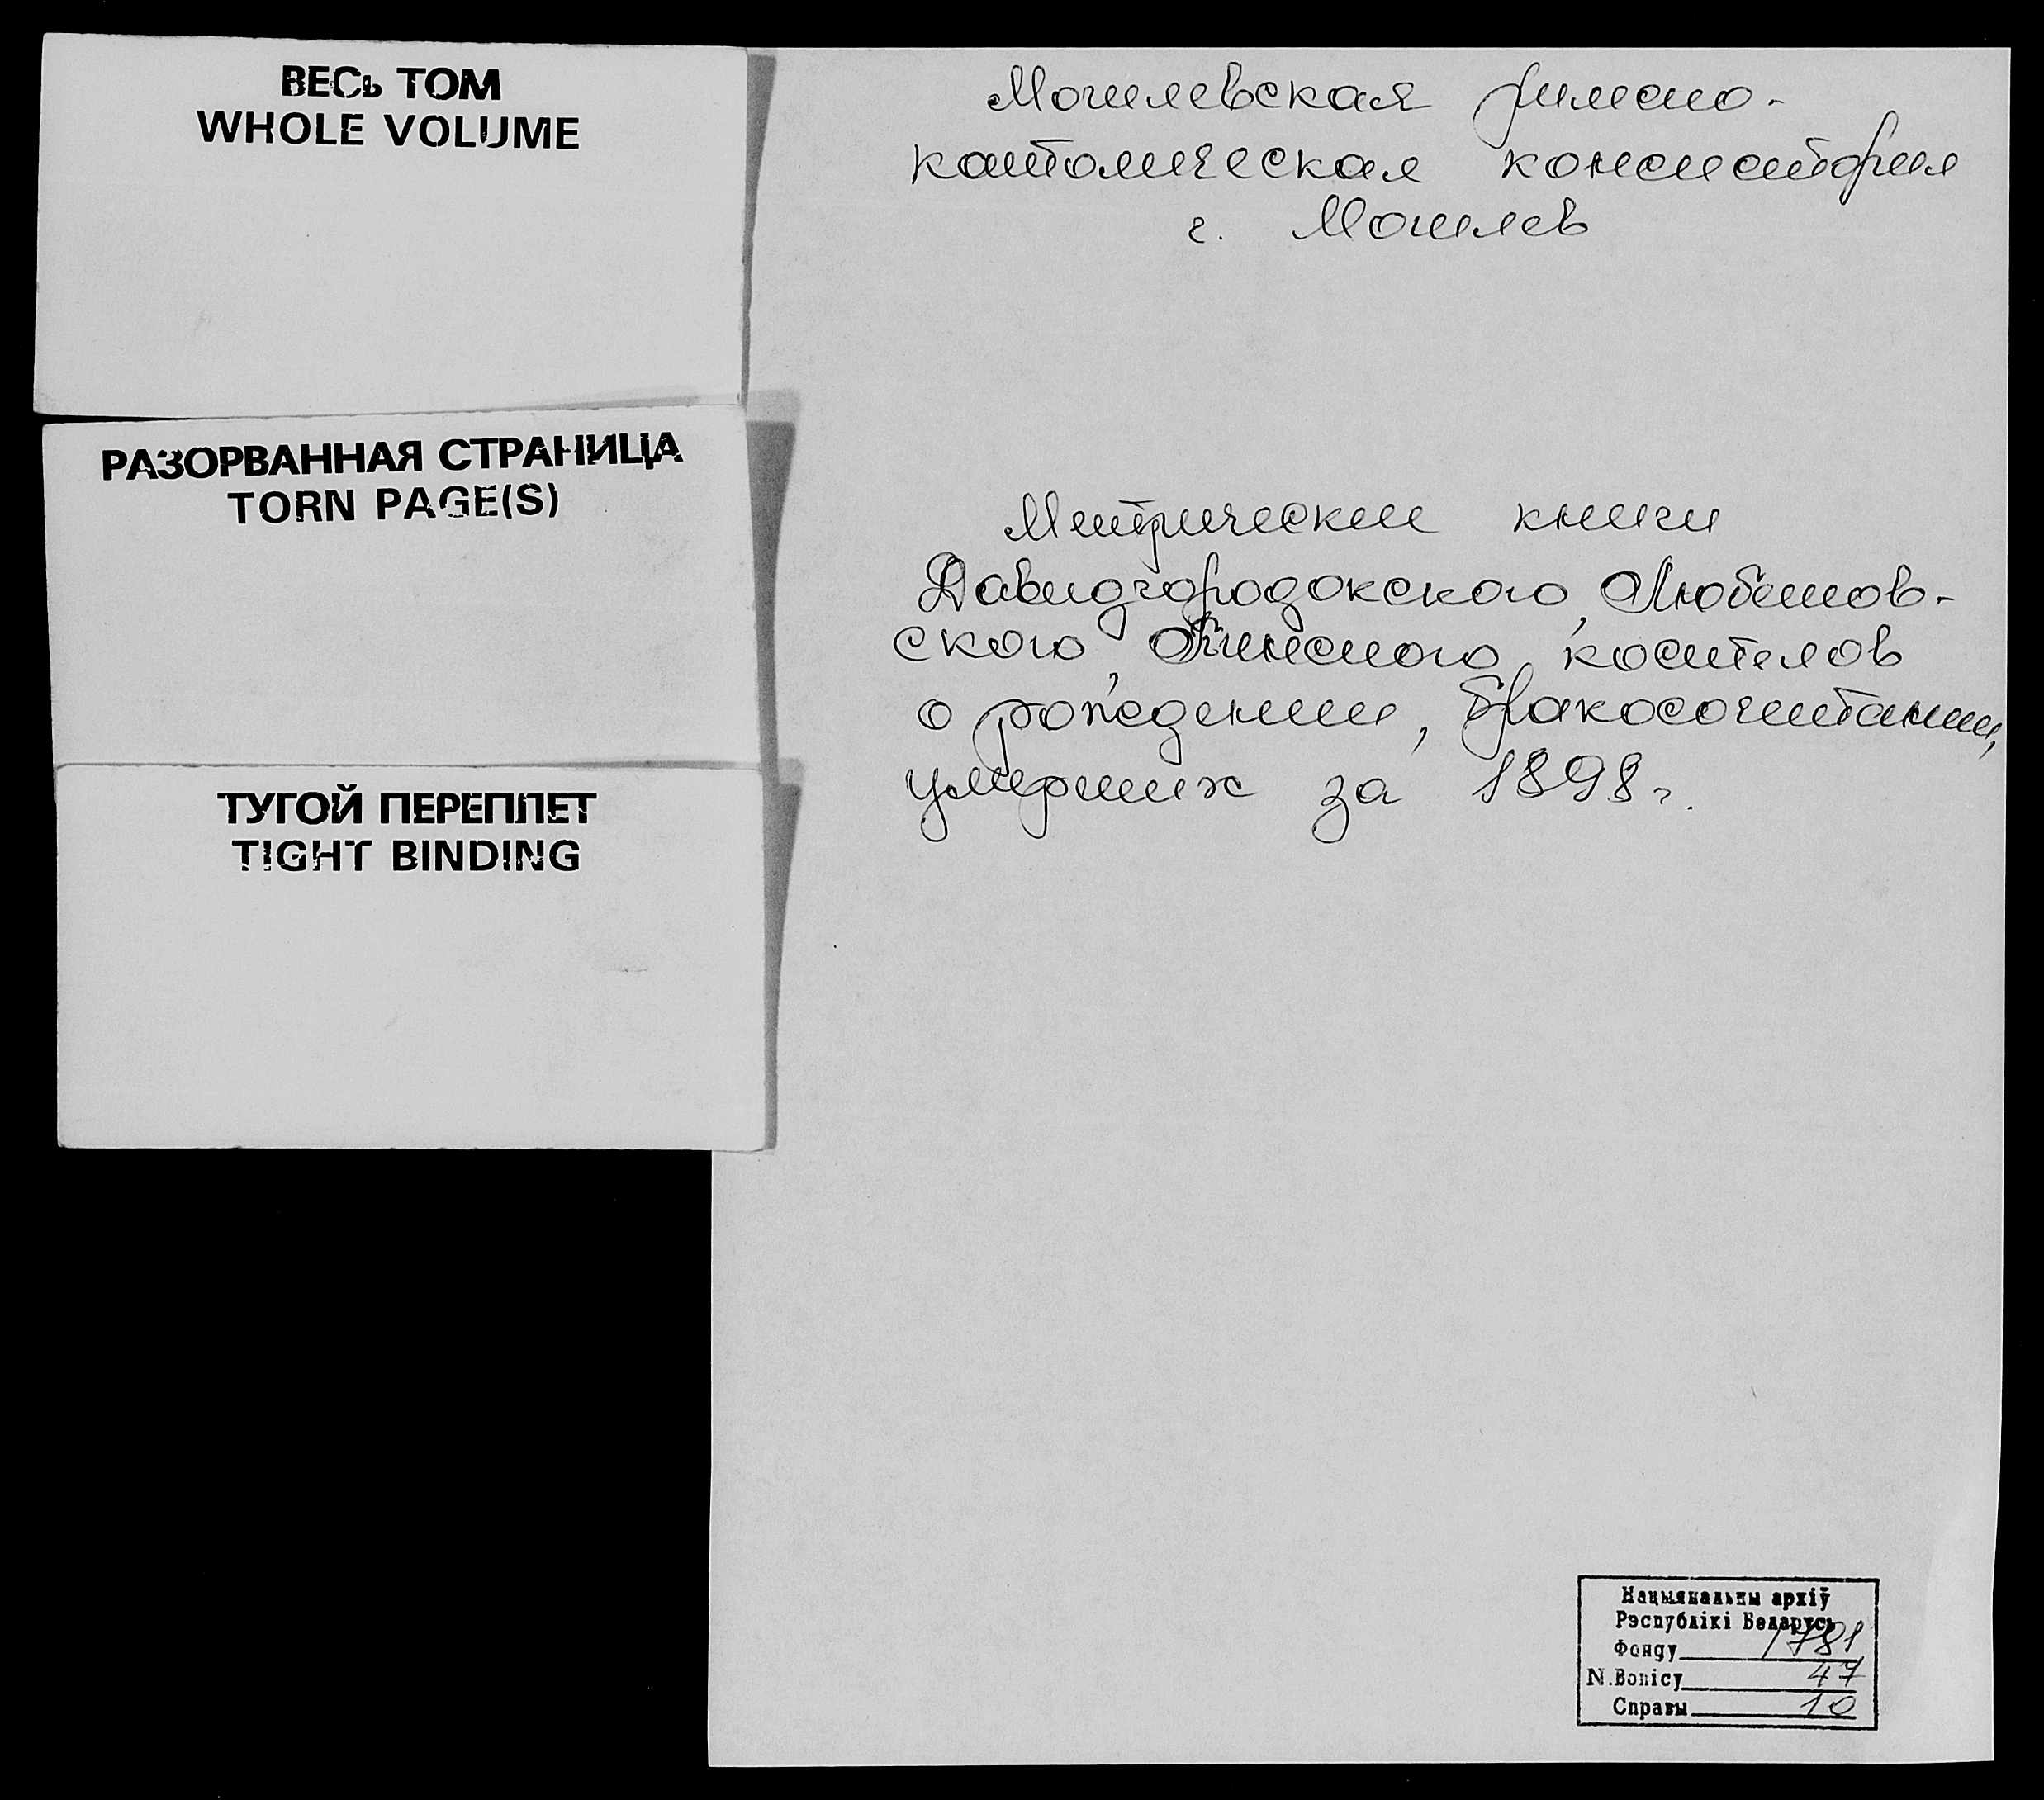 ВЕСЬ ТОМ
WHOLE VOLUME
РАЗОРВАННАЯ СТРАНИЦА
TORN PAGE(S)
ТУГОЙ ПЕРЕПЛЕТ
TIGHT BINDING
Могилевская римско-
католическая консистория
г. Могилев
Метрические книги
Давидгородокского, Любешов-
ского, Пинского, костелов
о рождении, бракосочетании,
умерших за 1898 г.
Нацыянальны архіў
Рэспублікі Беларусь
Фонду 1781
N. Вопісу 47
Справы 10